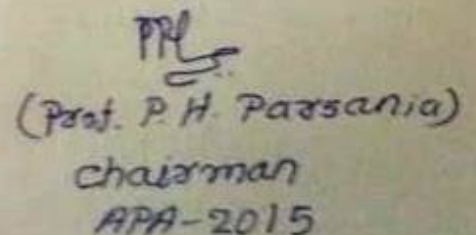 (Prof. P. H. Parsania)
Chairman
APA-2015